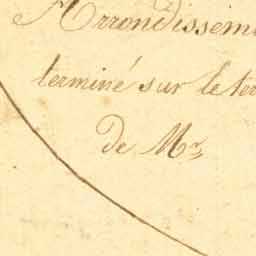 Arrondissem
terminé sur le ter
de Mr